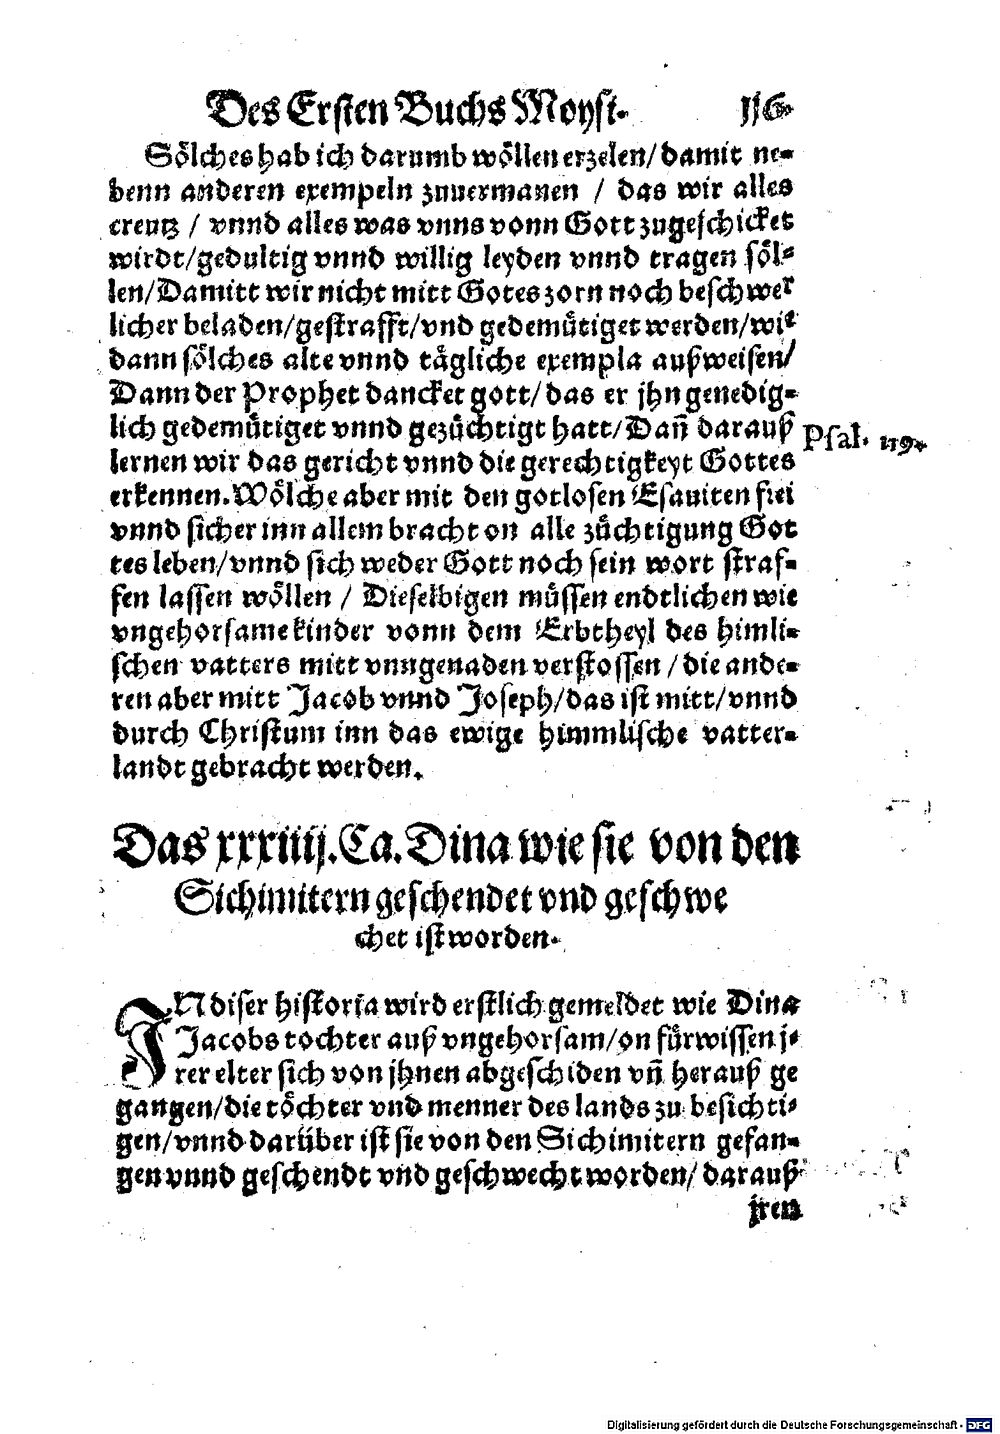 Des Ersten Buchs Moysi. 116.
Sölches hab ich darumb wöllen erzelen/ damit ne-
benn anderen exempeln zuuermanen / das wir alles
creutz / vnnd alles was vnns vonn Gott zugeschicket
wirdt/gedultig vnnd willig leyden vnnd tragen söl-
len/Damitt wir nicht mitt Gotes zorn noch beschwer
licher beladen/gestrafft/vnd gedemütiget werden/wie
dann sölches alte vnnd tägliche exempla außweisen/
Dann der Prophet dancket gott/ das er jhn genedig-
lich gedemütiget vnnd gezüchtigt hatt/Dañ darauß
Psal. 119.
lernen wir das gericht vnnd die gerechtigkeyt Gottes
erkennen. Wölche aber mit den gotlosen Esauiten frei
vnnd sicher inn allem bracht on alle züchtigung Got
tes leben/vnnd sich weder Gott noch sein wort straf-
fen lassen wöllen / Dieselbigen müssen endtlichen wie
vngehorsame kinder vonn dem Erbtheyl des himli-
schen vatters mitt vnngenaden verstossen /die ande-
ren aber mitt Jacob vnnd Joseph/das ist mitt/vnnd
durch Christum inn das ewige himmlische vatter-
landt gebracht werden.
Das xxxiiij. Ca. Dina wie sie von den
Sichimitern geschendet vnd geschwe
chet ist worden.
IN diser historia wird erstlich gemeldet wie Dina
Jacobs tochter auß vngehorsam/on fürwissen j-
rer elter sich von jhnen abgeschiden vñ herauß ge
gangen/die töchter vnd menner des lands zu besichti-
gen/vnnd darüber ist sie von den Sichimitern gefan-
gen vnnd geschendt vnd geschwecht worden/ darauß
jren
Digitalisierung gefördert durch die Deutsche Forschungsgemeinschaft - DFG